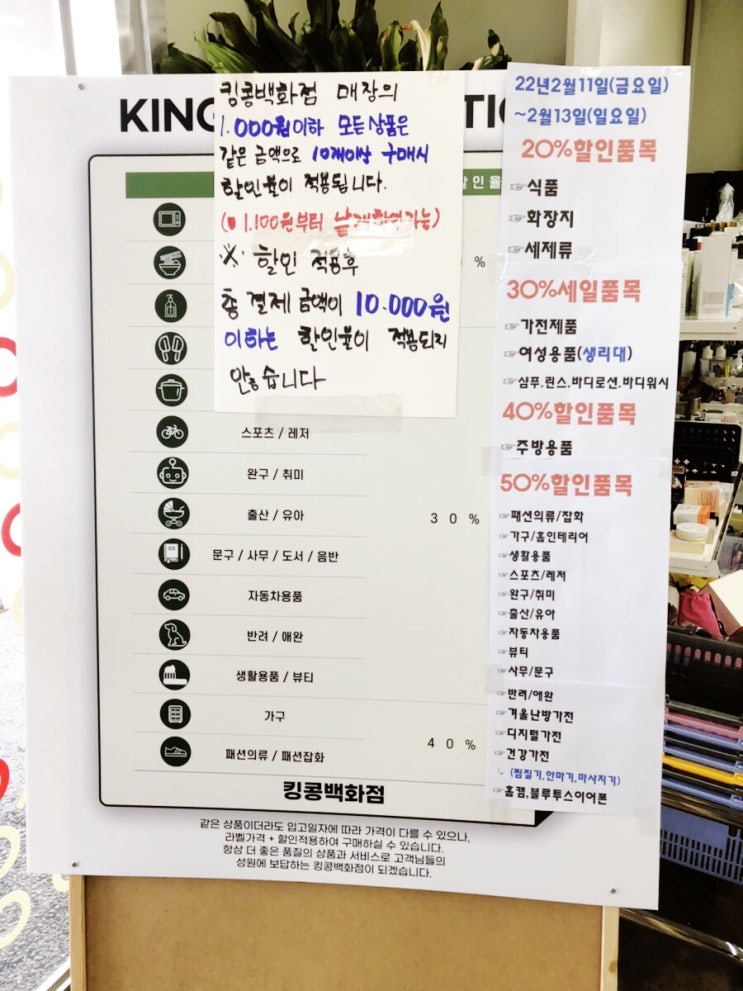 KING
TIO
킹콩백화점 매장의
1.000원이하 모든상품은
같은 금액으로 10개이상 구매시
할인율이 적용됩니다.
(● 1.100원부터 낱개할인가능)
※ 할인 적용후
총 결제 금액이 10.000원
이하는 할인율이 적용되지
않습니다
할인율
%
스포츠 / 레저
완구 / 취미
출산 / 유아
30%
문구 / 사무 / 도서 / 음반
자동차용품
반려 / 애완
생활용품 / 뷰티
가구
40%
패션의류 / 패션잡화
킹콩백화점
같은 상품이더라도 입고일자에 따라 가격이 다를 수 있으나,
라벨가격 + 할인적용하여 구매하실 수 있습니다.
항상 더 좋은 품질의 상품과 서비스로 고객님들의
성원에 보답하는 킹콩백화점이 되겠습니다.
22년2월11일(금요일)
~2월13일(일요일)
20%할인품목
☞식품
☞화장지
☞세제류
30%세일품목
☞가전제품
☞여성용품(생리대)
☞샴푸.린스.바디로션.바디워시
40%할인품목
☞주방용품
50%할인품목
☞패션의류/잡화
☞가구/홈인테리어
☞생활용품
☞스포츠/레저
☞완구/취미
☞출산/유아
☞자동차용품
☞뷰티
☞사무/문구
☞반려/애완
☞겨울난방가전
☞디지털가전
☞건강가전
(찜질기,안마기,마사지기)
☞홈캠,블루투스이어폰